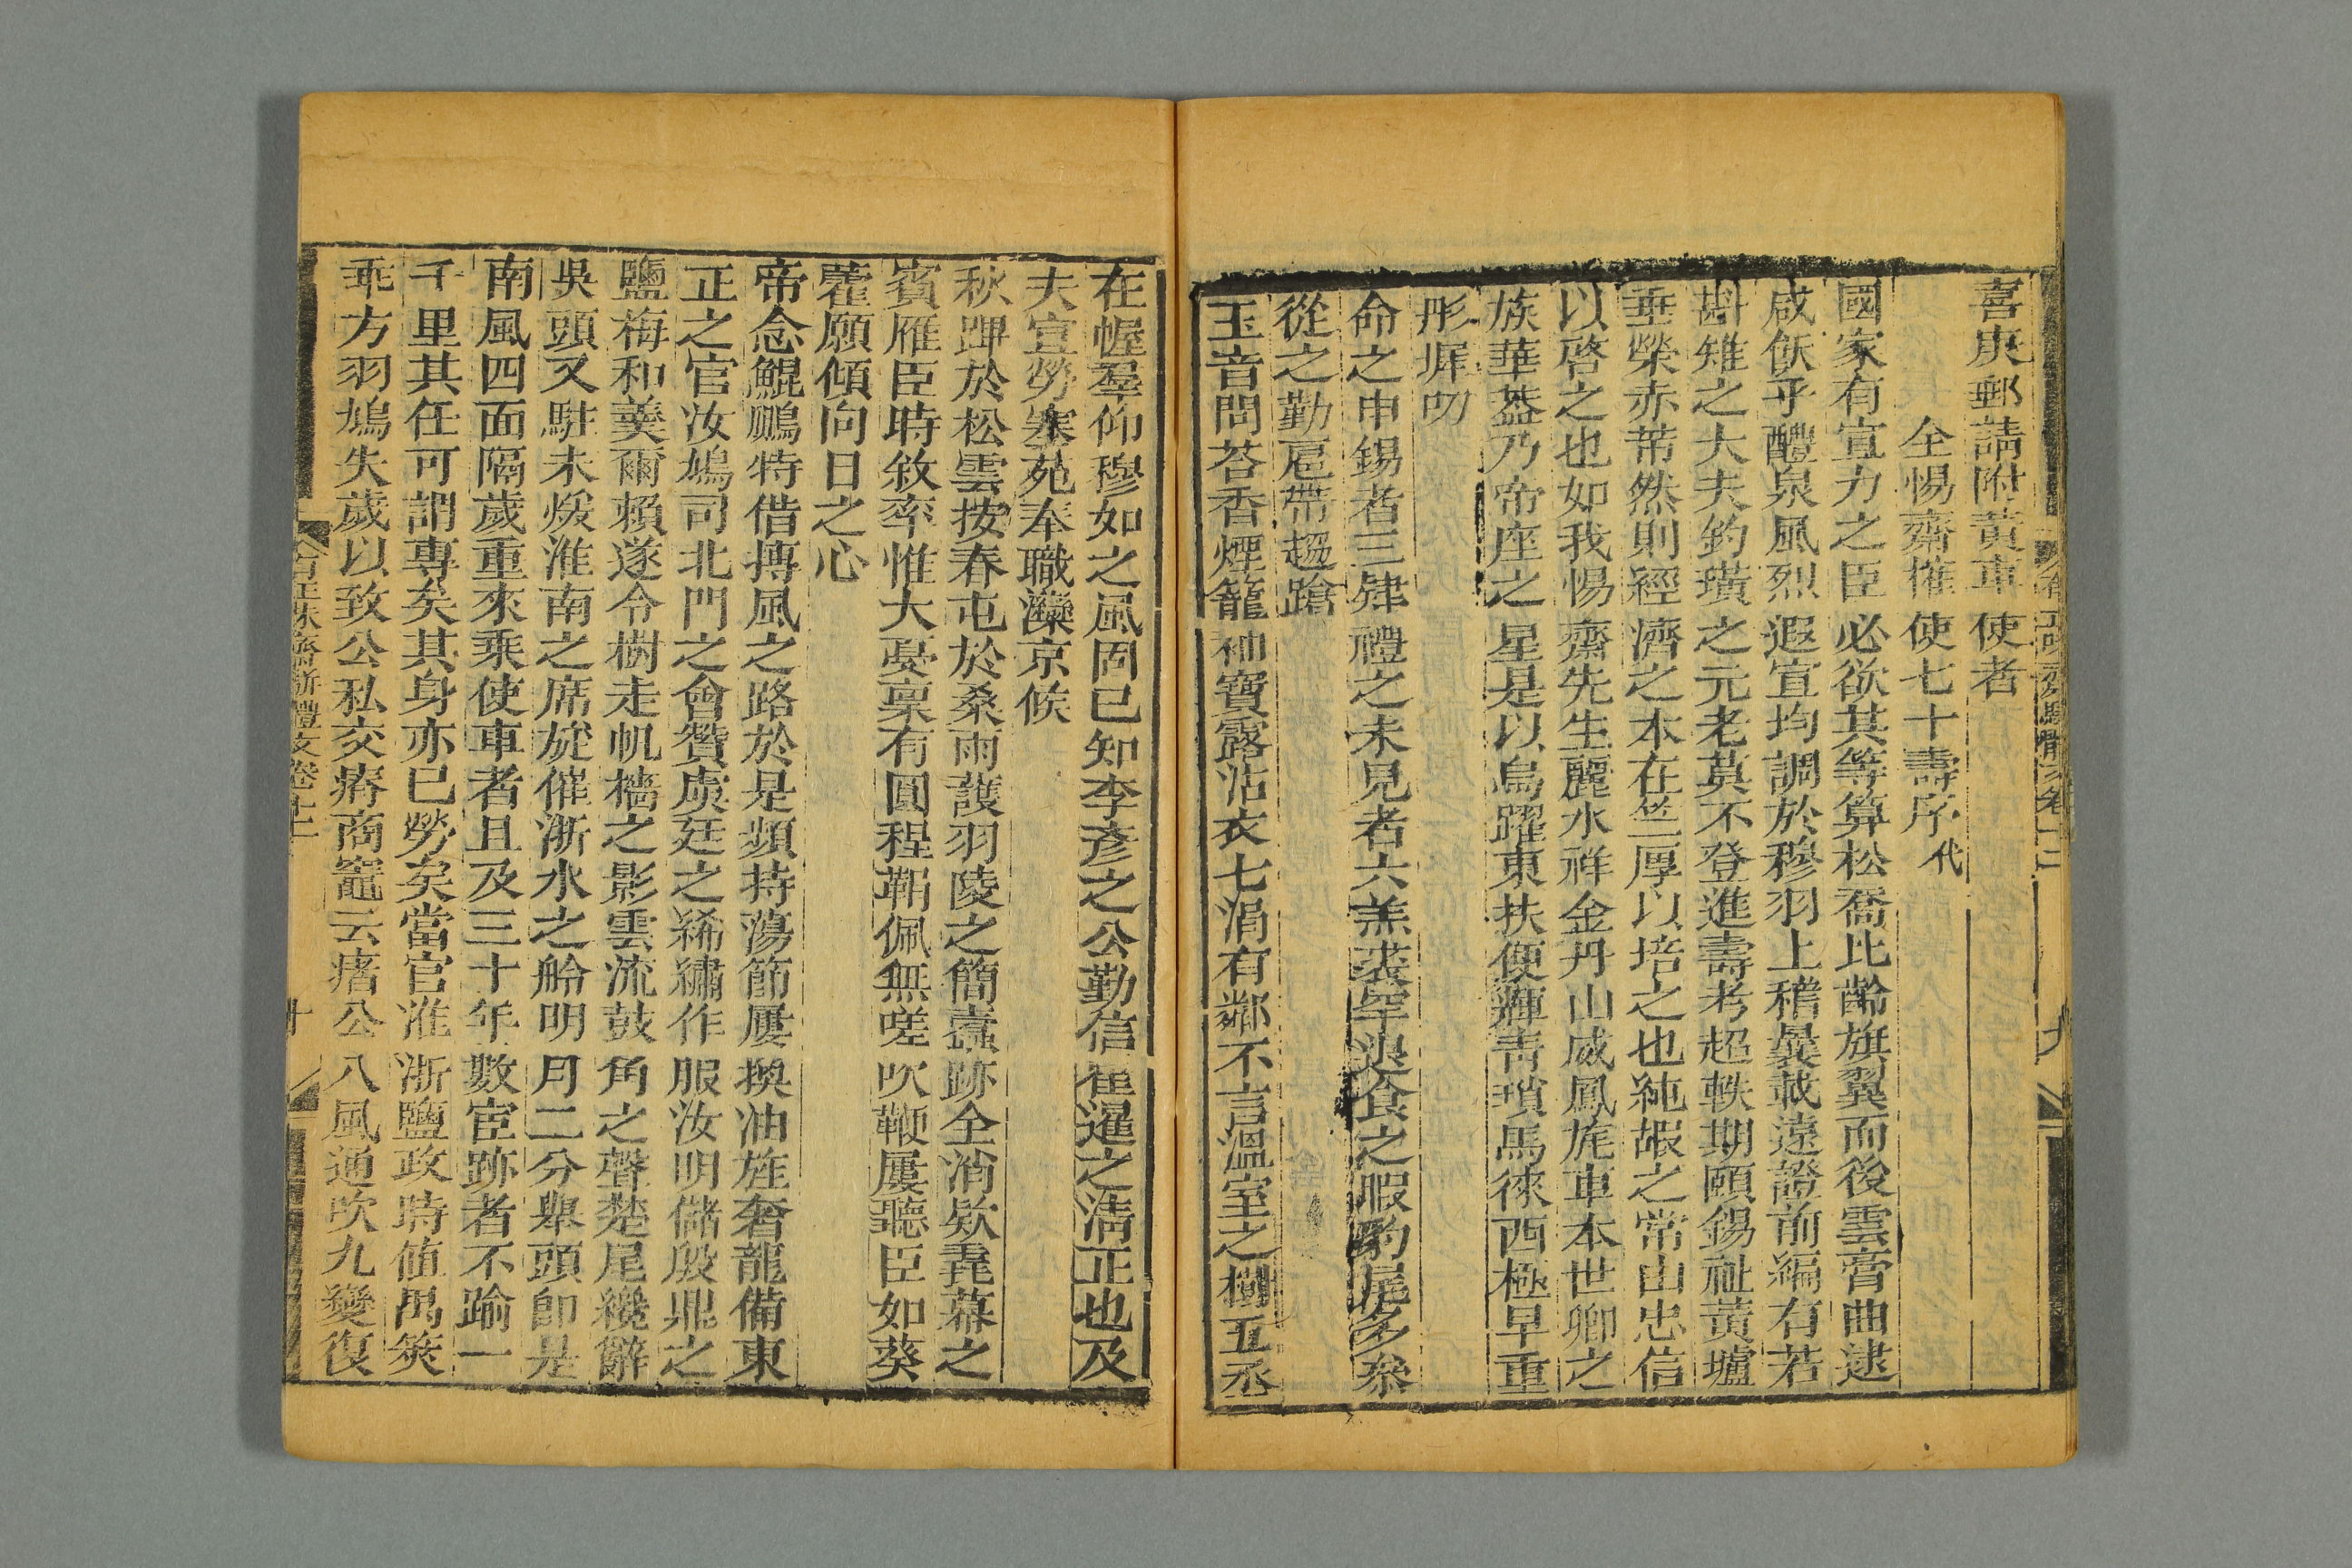 喜庚郵請附黃車使者
全惕齋榷使七十壽序代
國家有宣力之臣必欲其等算松喬比齡旗翼而後雲膏曲逮
咸飫乎醴泉風烈遐宣均調於穆羽上稽曩載遠證前編有若
斟雉之大夫釣璜之元老莫不登進壽考超軼期頤錫祉黃壚
垂榮赤芾然則經濟之本在竺厚以培之也純嘏之常由忠信
以啓之也如我惕齋先生麗水祥金丹山威鳳旄車本世卿之
族華葢乃帝座之星是以烏躍東扶便輝靑瑣馬徠西極早重
彤墀叨
命之申錫者三肄禮之未見者六羔裘牢退食之暇豹尾多叅
從之勤扈帶趨蹌
玉音問荅香煙籠袖寶露沾衣七涓有鄰不言溫室之樹五丞
在幄羣仰穆如之風固已知李彥之公勤信崔暹之淸正也及
夫宣勞寨苑奉職灤京候
秋蹕於松雲按春屯於桑雨護羽陵之簡蠹跡全消欵毳幕之
賓雁臣時敘率惟大戞稟有圓程鞘佩無嗟吹鞭屢聽臣如葵
藿願傾向日之心
帝念鯤鵬特借摶風之路於是頻持蕩節屢換油旌奢龍備東
正之官汝鳩司北門之會贊虞廷之絺繡作服汝明儲殷鼎之
鹽梅和羹爾賴遂令樹走帆檣之影雲流鼓角之聲楚尾纔辭
吳頭又駐未煖淮南之席旋催浙水之舲明月二分舉頭卽是
南風四面隔歲重來乘使車者且及三十年數宦跡者不踰一
千里其任可謂專矣其身亦已勞矣當官淮浙鹽政時値禺筴
乖方羽鳩失歲以致公私交瘠商竈云瘏公八風通吹九變復
合江朱齋駢體文卷十二
十